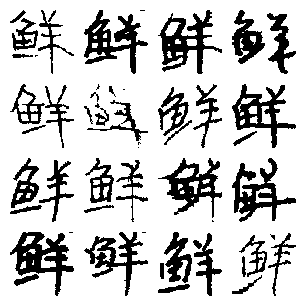 鲜鲜鲜鲜
鲜鲜鲜鲜
鲜鲜鲜鲜
鲜鲜鲜鲜